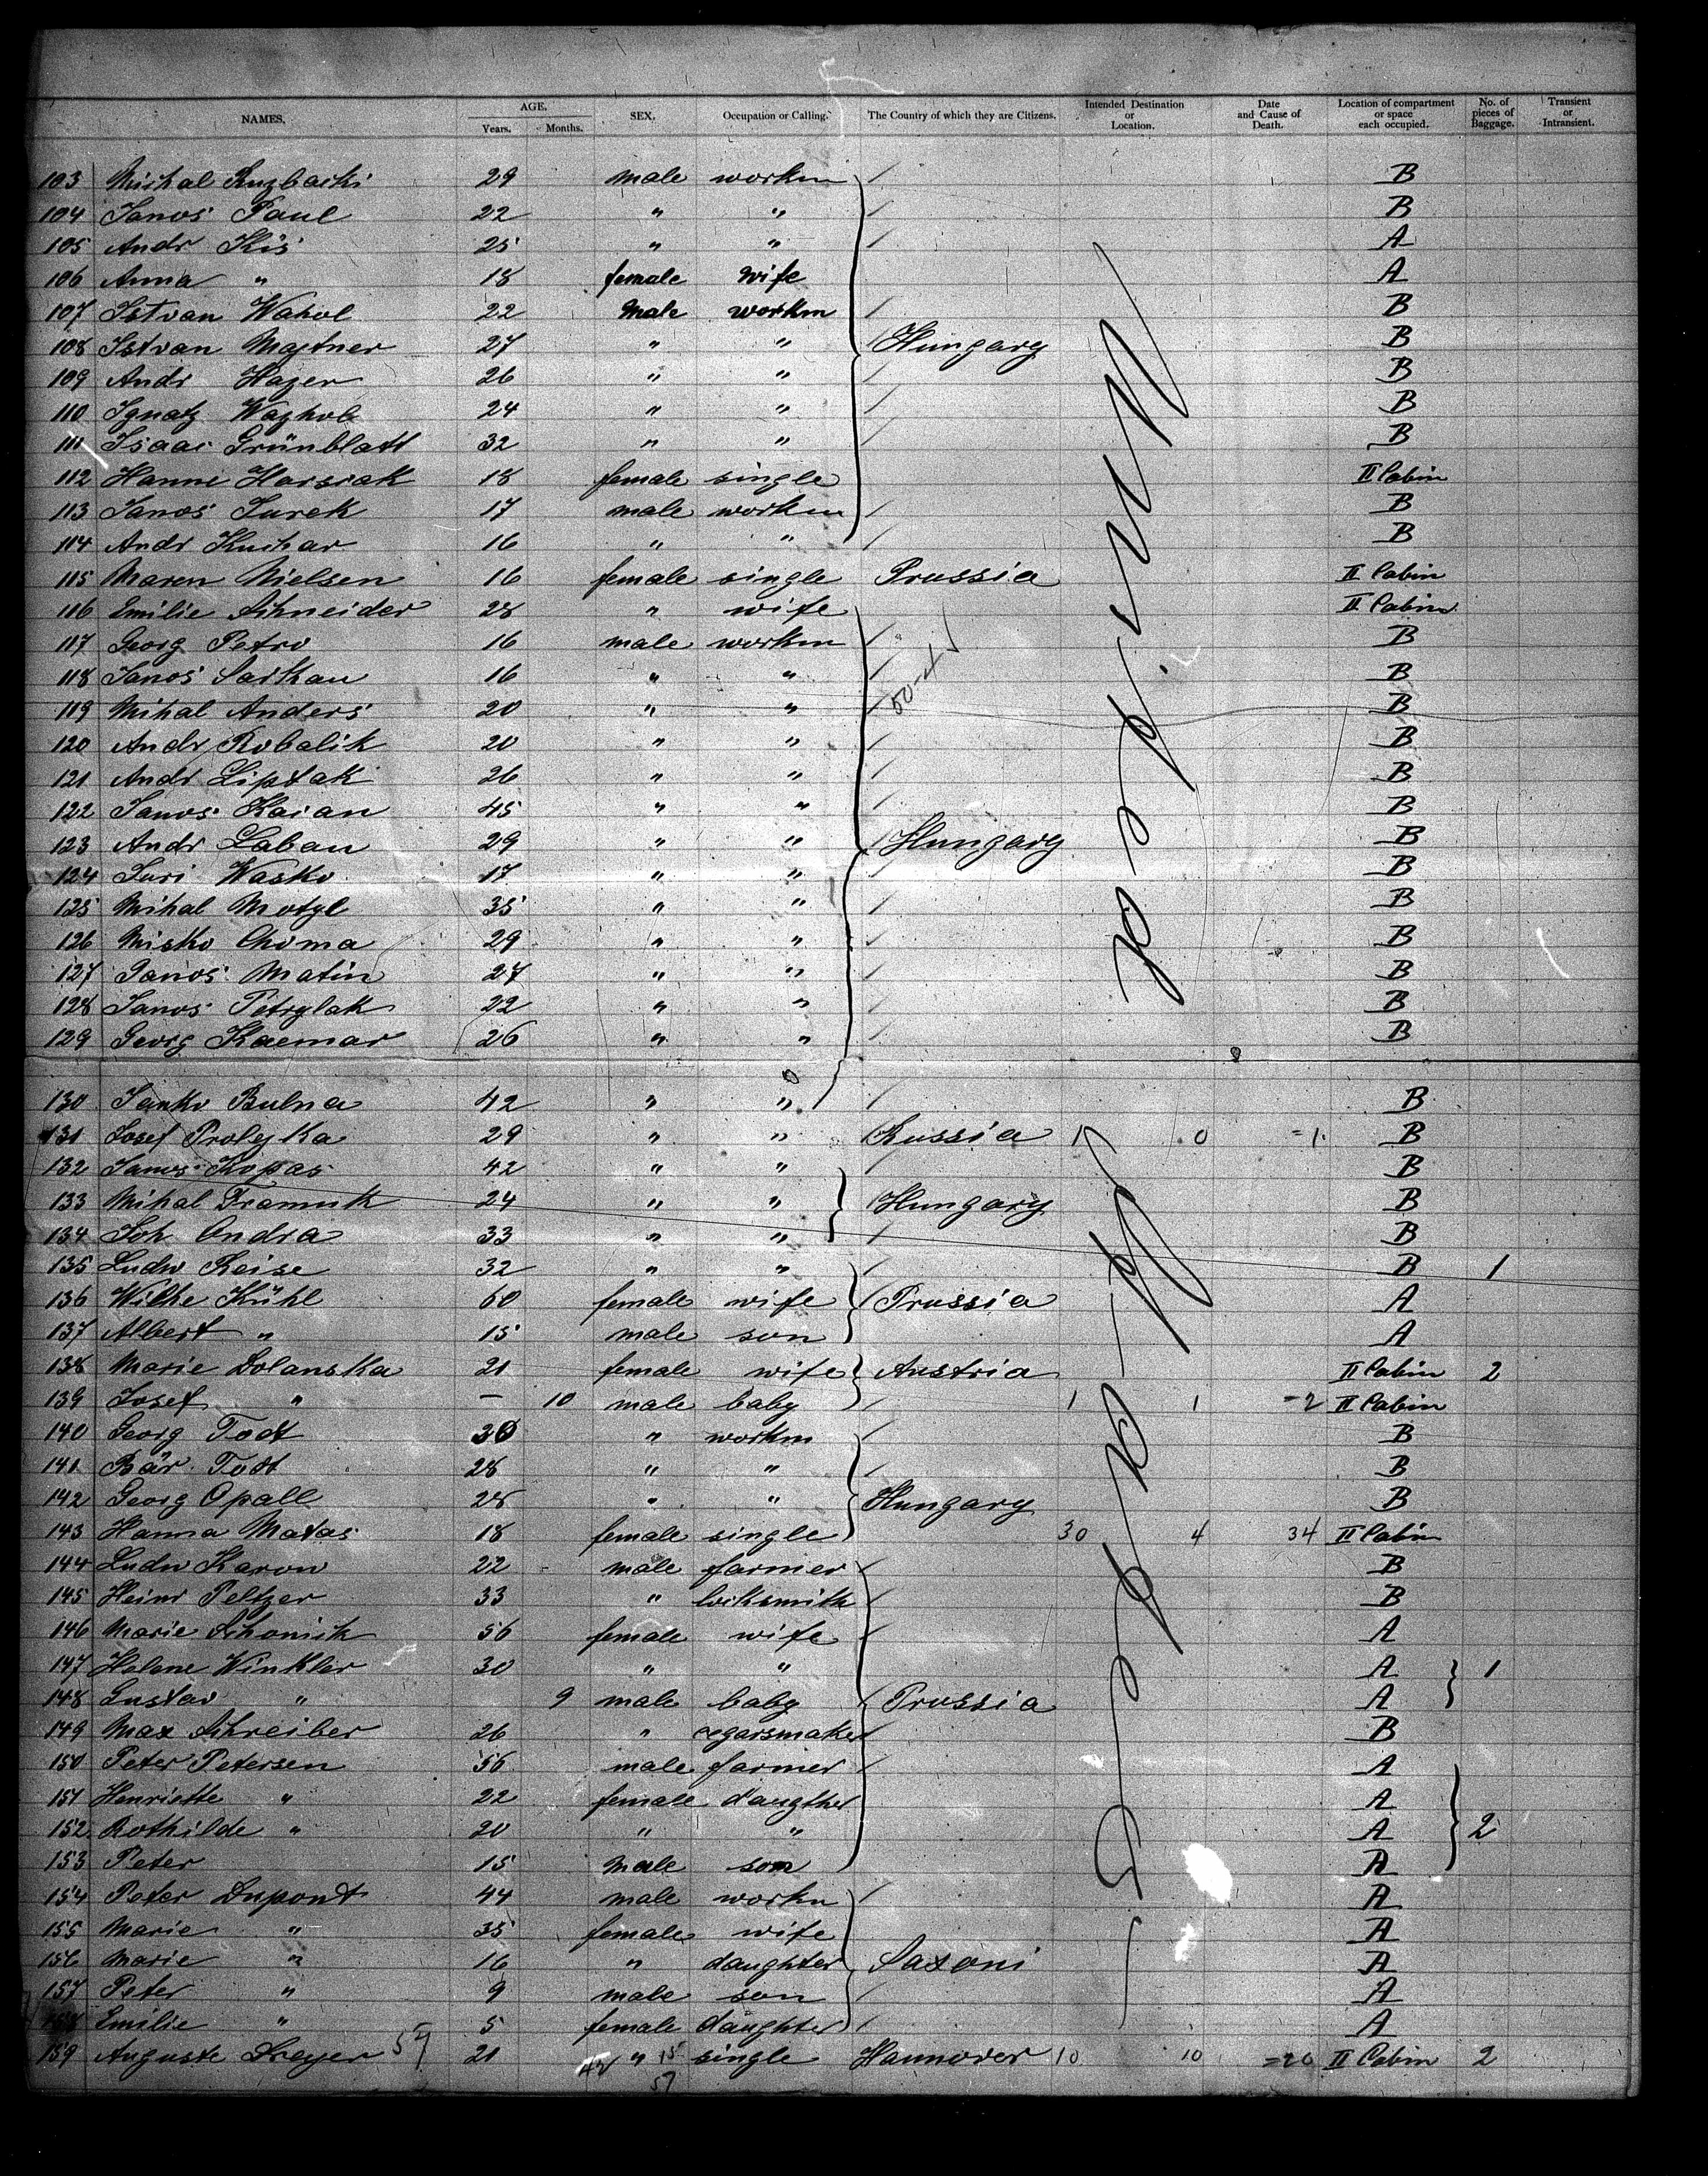 NAMES. AGE. Years. Months. SEX. Occupation or Calling. The Country of which they are Citizens. Intended Destination or Location. Date and Cause of Death. Location of compartment or space each occupied. No. of pieces of Baggage. Transient or Intransient.
103 Michal 29 male workm B
104 Janos Paul 22 " " B
105 Andr Kis 25 " " A
106 Anna " 18 female wife A
107 Istvan Wahol 22 male workm B
108 Istvan Majtner 27 " " Hungary B
109 Andr Hazer 26 " " B
110 Ignatz 24 " " B
111 Isaac Grünblatt 32 " " B
112 Hanni Harsiak 18 female single II Cabin
113 Janos Jurek 17 male workm B
114 Andr Kuchar 16 " " B
115 Maren Nielsen 16 female single Prussia II Cabin
116 Emilie Schneider 28 " wife II Cabin
117 Georg Petro 16 male workm B
118 Janos Sarkau 16 " " B
119 Mihal Anders 20 " " B
120 Andr Robalik 20 " " B
121 Andr Liptak 26 " " B
122 Janos Kaian 45 " " B
123 Andr Laban 29 " " Hungary B
124 Juri Wasko 17 " " B
125 Mihal Motyl 35 " " B
126 Misko Choma 29 " " B
127 Janos Matin 27 " " B
128 Janos Petrylak 22 " " B
129 Georg Kacmar 26 " " B
130 Janko Bulna 42 " " B
131 Josef 29 " " Russia 1 0 =1 B
132 Janos Kopas 42 " " B
133 Mihal Dramuk 24 " " Hungary B
134 Joh Ondra 33 " " B
135 Ludw Reise 32 " " B 1
136 Wilhe Kühl 60 female wife Prussia A
137 Albert " 15 male son A
138 Marie Dolanska 21 female wife Austria II Cabin 2
139 Josef " — 10 male baby 1 1 =2 II Cabin
140 Georg Todt 30 " workm B
141 Bär Todt 28 " " B
142 Georg Opall 28 " " Hungary B
143 Hanna Matas 18 female single 30 4 34 II Cabin
144 Ludw Karow 22 male farmer B
145 Heinr Peltzer 33 " locksmith B
146 Marie Schomik 56 female wife A
147 Helene Winkler 30 " " A 1
148 Gustav " 9 male baby Prussia A
149 Max Schreiber 26 " B
150 Peter Petersen 56 male farmer A
151 Henriette " 22 female daugther A
152 Rothilde " 20 " " A 2
153 Peter 15 male son A
154 Peter Dupont 44 male workm A
155 Marie " 35 female wife A
156 Marie " 16 " daughter Saxoni A
157 Peter " 9 male son A
158 Emilie " 5 female daughter A
159 Auguste Dreyer 57 21 " single Hannover 10 10 =20 II Cabin 2
57